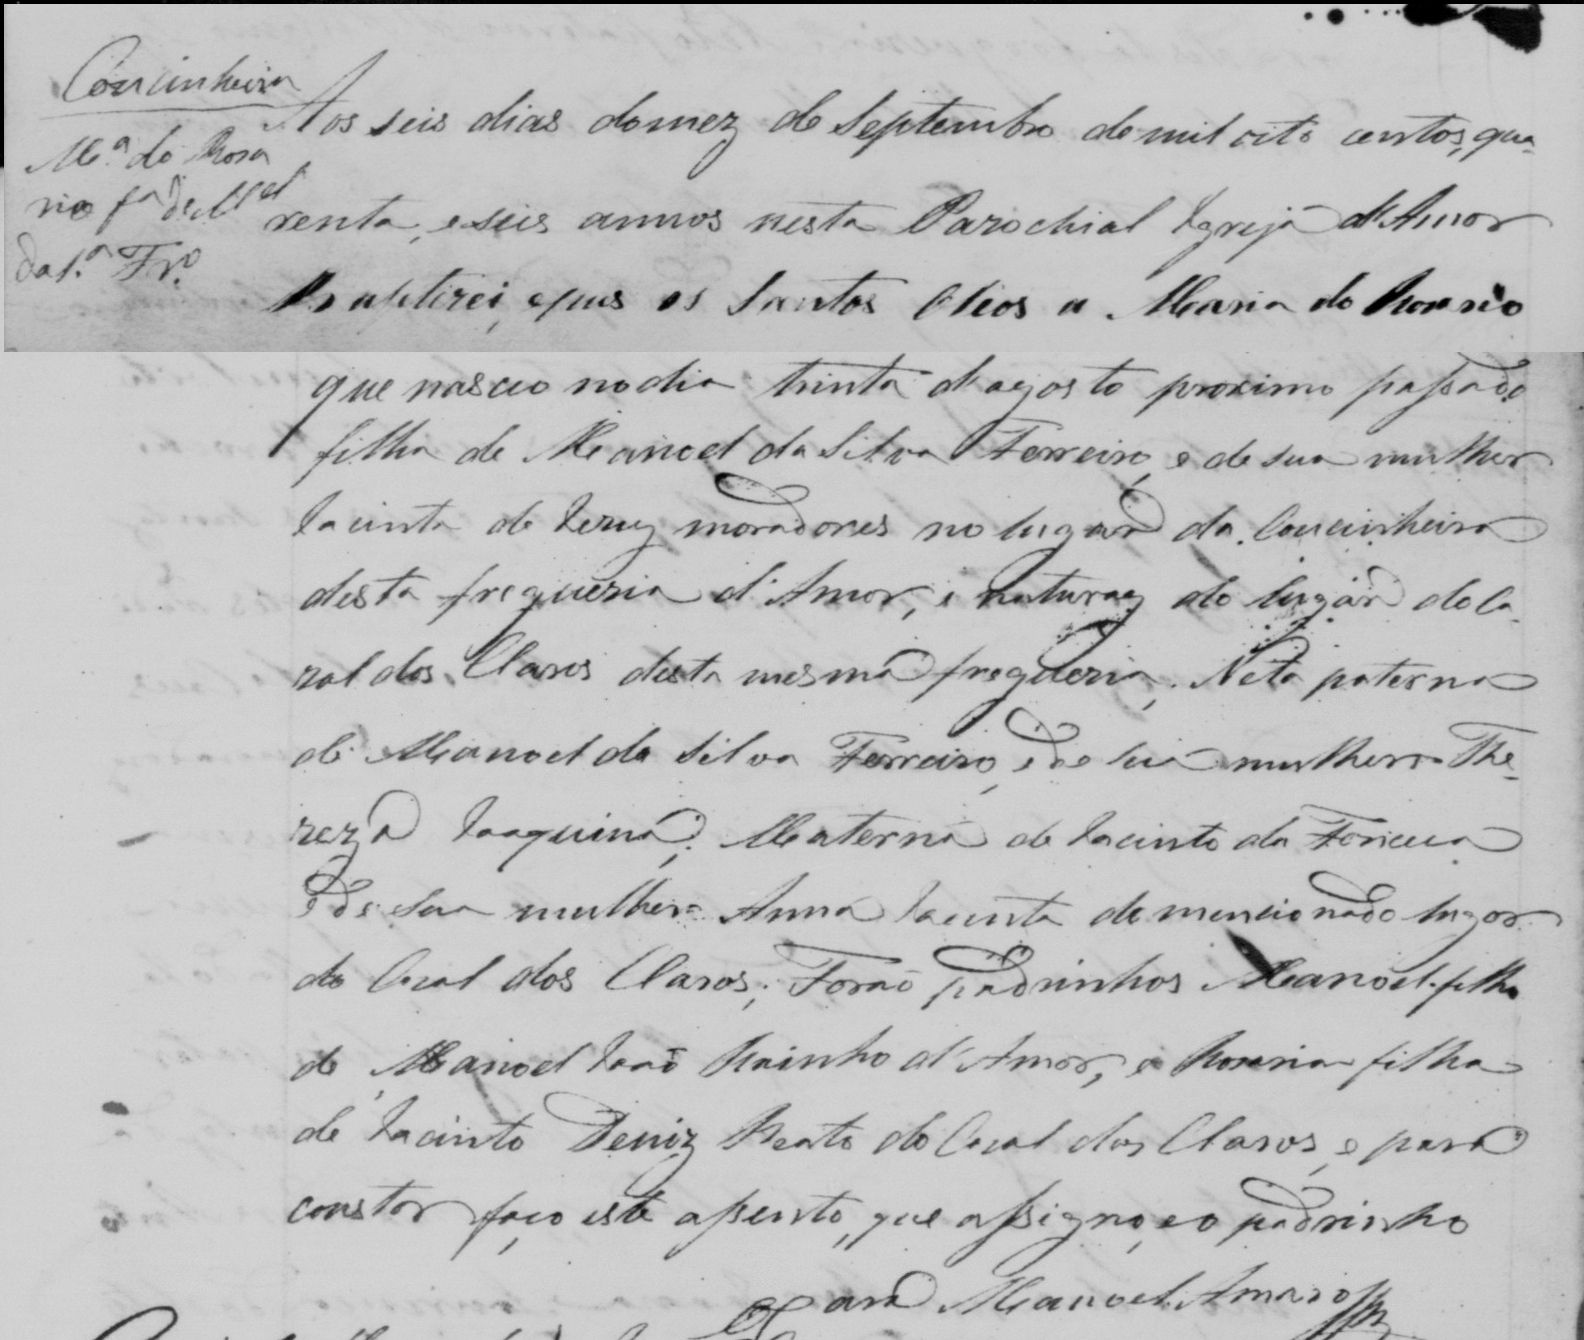 Coucinheira
M.ª do Rosa
rio f.ª de M.el
da S.ª Fr.º
Aos seis dias do mez de Septembro de mil oito centos, qua-
renta, e seis annos nesta Parochial Igreja d'Amor
Baptizei, e pus os Santos Oleos a Maria do Rosario
que nasceo no dia trinta d'agosto proximo passado
filha de Manoel da Silva Ferreiro, e de sua mulher
Jacinta de Jezuz moradores no lugar da Coucinheira
desta freguezia d'Amor, e naturaes do lugar do Ca-
zal dos Claros desta mesma freguezia, Neta paterna
de Manoel da Silva Ferreiro, e de sua mulher The-
reza Joaquina; Materna de Jacinto da
e de sua mulher Anna Jacinta do mencionado lugar
do Cazal dos Claros; Forão padrinhos Manoel filho
de Manoel João Rainho d'Amor, e Rosaria filha
de Jacinto Deniz Beato do Cazal dos Claros, e para
constar faço este assento, que assigno, e o padrinho
Manoel Amaro